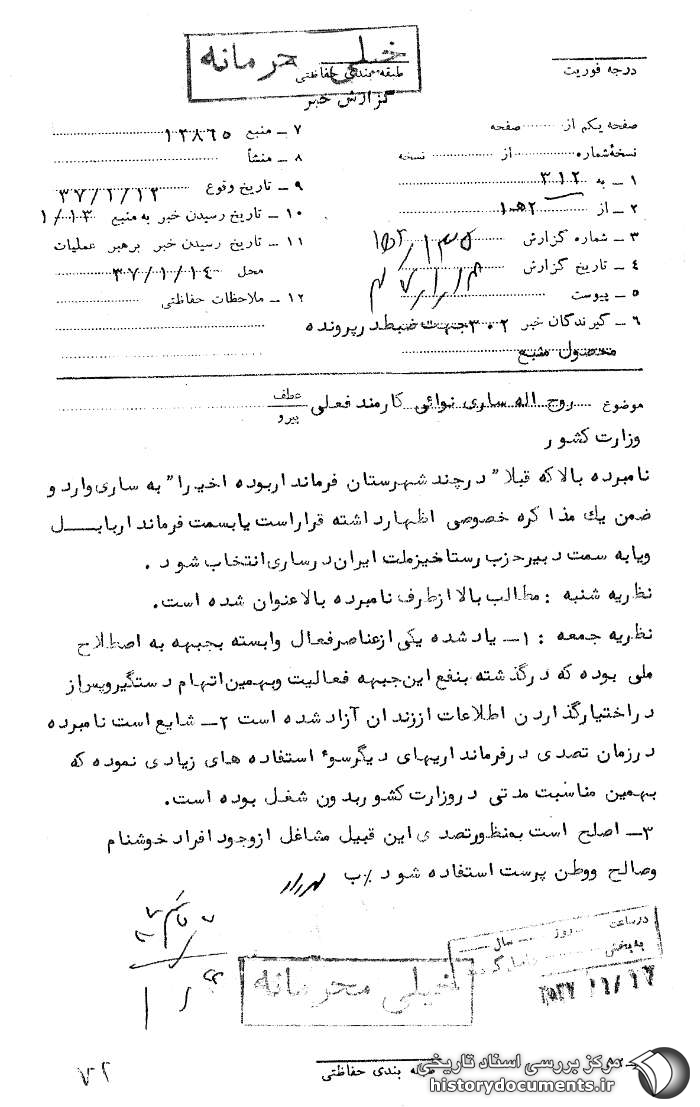 خیلی محرمانه
طبقه بندی حفاظتی
گزارش خبر
درجه فوریت
صفحه یکم از صفحه
نسخهٔ شماره از نسخه
۱ ـ به ۳۱۲
۲ ـ از ۲هـ۱
۳ ـ شماره گزارش
۴ ـ تاریخ گزارش
۵ ـ پیوست
۶ ـ گیرندگان خبر ۳۰۲ جهت ضبط در پرونده
محصول منبع
۷ ـ منبع ۱۲۸۶۵
۸ ـ منشأ
۹ ـ تاریخ وقوع ۳۷/۱/۱۲
۱۰ ـ تاریخ رسیدن خبر به منبع ۱/۱۳
۱۱ ـ تاریخ رسیدن خبر برهبر عملیات
محل ۳۷/۱/۱۴
۱۲ ـ ملاحظات حفاظتی
موضوع روح اله ساری نوائی کارمند فعلی عطف پیرو
وزارت کشور
نامبرده بالا که قبلا" در چند شهرستان فرماندار بوده اخیرا" به ساری وارد و
ضمن یك مذاکره خصوصی اظهار داشته قرار است یا بسمت فرماندار بابـــل
ویا به سمت دبیر حزب رستاخیز ملت ایران در ساری انتخاب شود .
نظریه شنبه : مطالب بالا از طرف نامبرده بالا عنوان شده است.
نظریه جمعه : ۱ـ یاد شده یکی از عناصر فعال وابسته بجبهه به اصطلاح
ملی بوده که در گذشته بنفع این جبهه فعالیت وبهمین اتهام دستگیر وپس از
در اختیار گذاردن اطلاعات از زندان آزاد شده است ۲ـ شایع است نامبرده
در زمان تصدی در فرمانداریهای دیگر سوء استفاده های زیادی نموده که
بهمین مناسبت مدتی در وزارت کشور بدون شغل بوده است.
۳ـ اصلح است بمنظور تصدی این قبیل مشاغل از وجود افراد خوشنام
وصالح ووطن پرست استفاده شود ٪ب
در ساعت روز سال
به بخش
خیلی محرمانه
طبقه بندی حفاظتی
مرکز بررسی اسناد تاریخی
historydocuments.ir